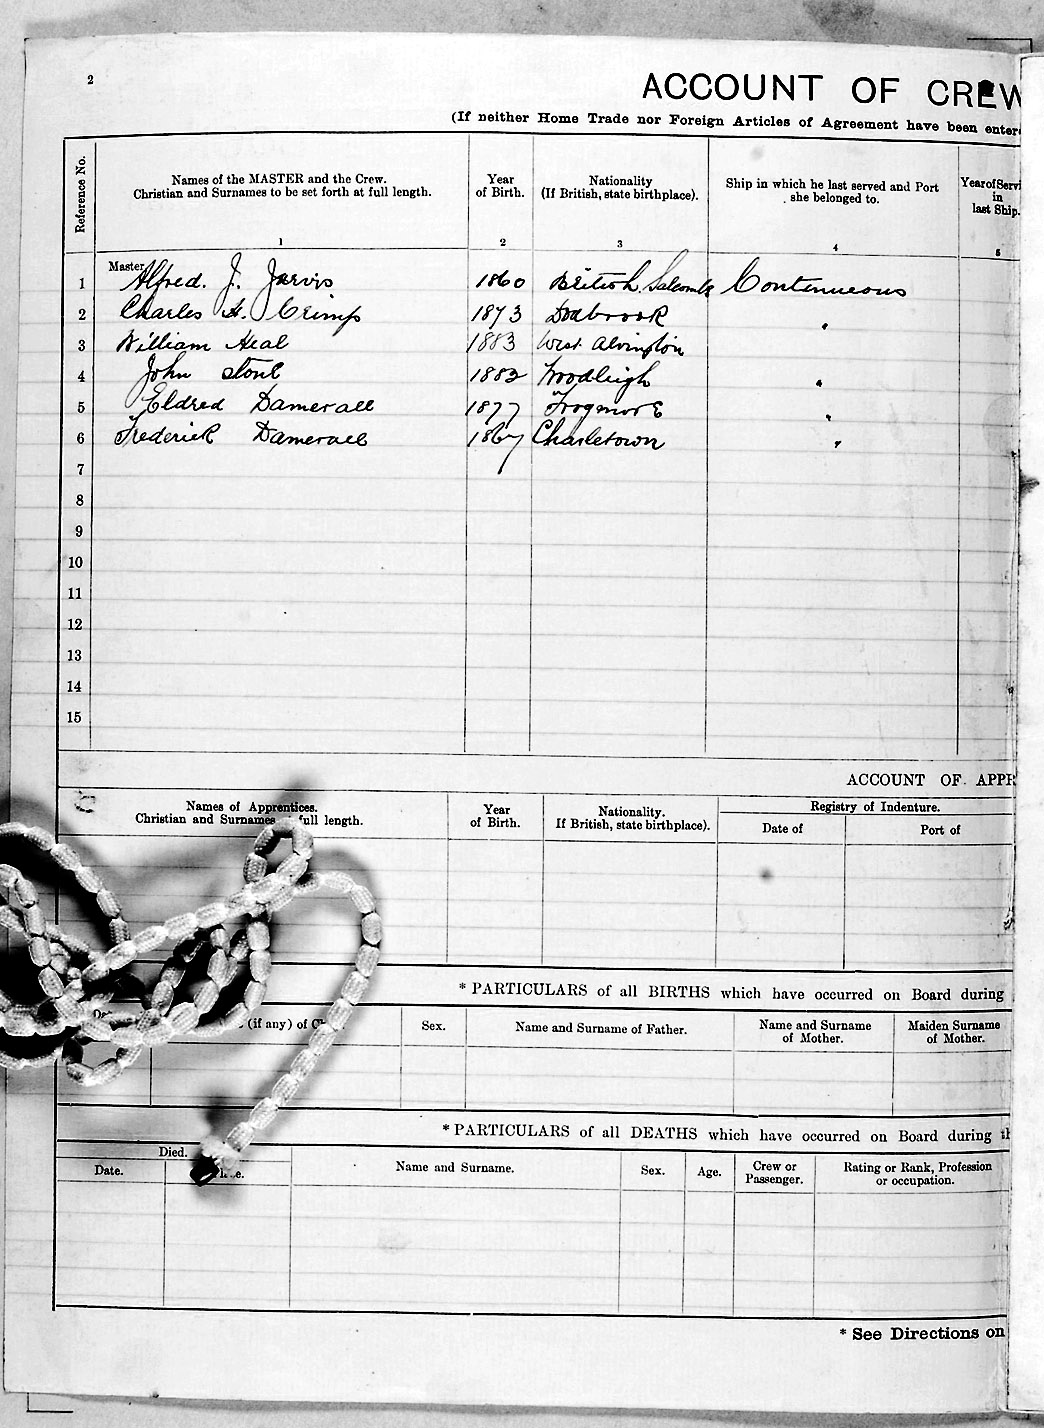 2
ACCOUNT OF CREW
(If neither Home Trade nor Foreign Articles of Agreement have been enter
Reference No.
Names of the MASTER and the Crew.
Christian and Surnames to be set forth at full length.
1
Year
of Birth.
2
Nationality
(If British, state birthplace).
3
Ship in which he last served and Port
she belonged to.
4
Year of Servi
in
last Ship.
5
1 Master Alfred. J. Jarvis 1860 British. Salcombe Contenueous
2 Charles H. Crimp 1873 Dodbrook "
3 William Heal 1883 West Alvington
4 John Stone 1882 Woodleigh "
5 Eldred Damerall 1877 Frogmore "
6 Frederick Damerall 1867 Charletown "
7
8
9
10
11
12
13
14
15
ACCOUNT OF APPR
Names of Apprentices.
Christian and Surnames full length.
Year
of Birth.
Nationality.
If British, state birthplace).
Registry of Indenture.
Date of
Port of
* PARTICULARS of all BIRTHS which have occurred on Board during
(if any) of
Sex.
Name and Surname of Father.
Name and Surname
of Mother.
Maiden Surname
of Mother.
* PARTICULARS of all DEATHS which have occurred on Board during th
Died.
Date.
Name and Surname.
Sex.
Age.
Crew or
Passenger.
Rating or Rank, Profession
or occupation.
* See Directions on